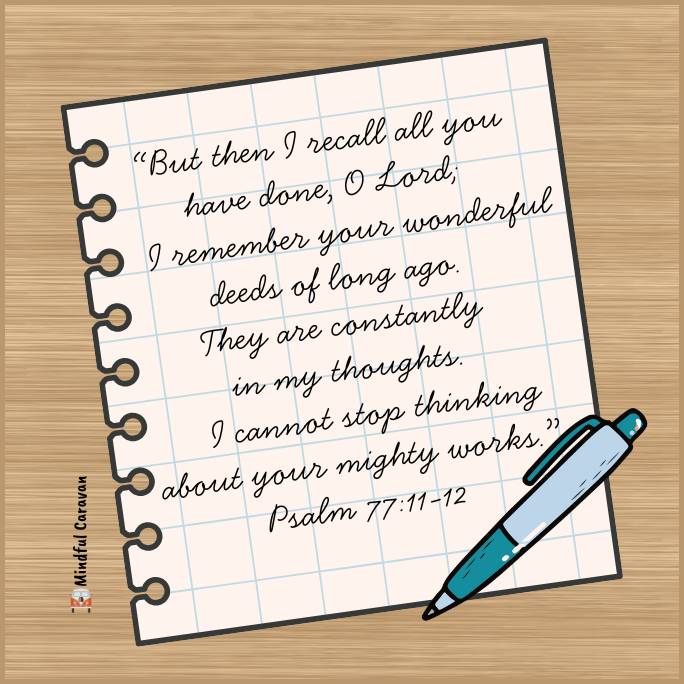 “But then I recall all you
have done, O Lord;
I remember your wonderful
deeds of long ago.
They are constantly
in my thoughts.
I cannot stop thinking
about your mighty works.”
Psalm 77:11-12
Mindful Caravan